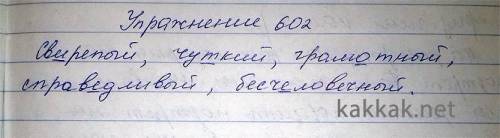 Упражнение 602
Свирепый, чуткий, грамотный,
справедливый, бесчеловечный.
kakkak.net